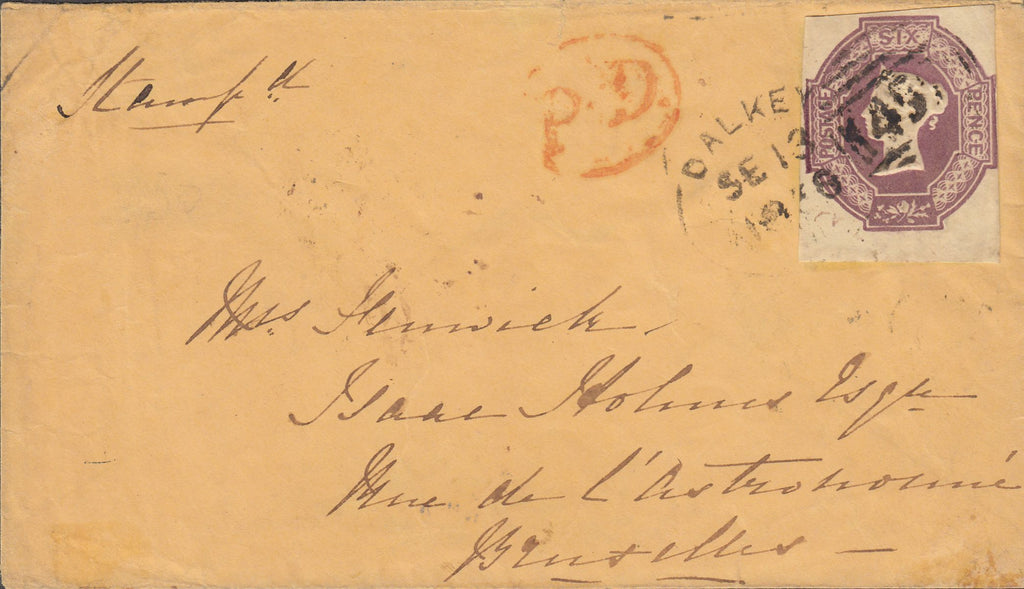 Stamp.d
P.D
DALKEY
SE 13
SIX
PENCE
POSTAGE
Mrss Fenwick,
Isaac Holmes Esqre
Rue de l'Astronomié
Bruxelles —